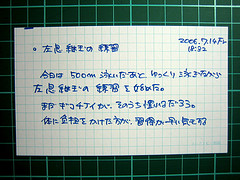 2006.7.14 Fr
18:32
○ 左息継ぎの練習
今日は500m泳いだあと、ゆっくり泳ぎながら
左息継ぎの練習を始めた。
まだギコチナイが、そのうち慣れるだろう。
体に負担をかけた方が、習得が早い気がする